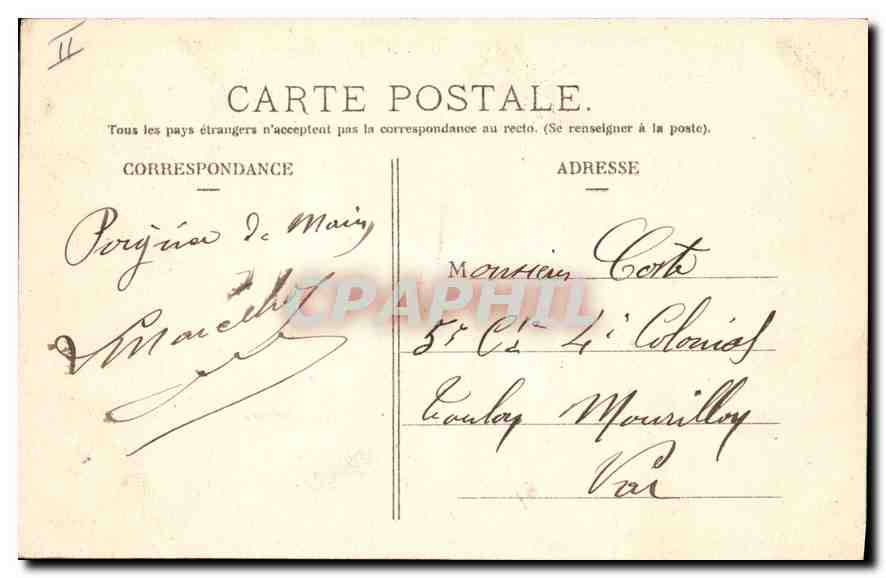 II
CARTE POSTALE.
Tous les pays étrangers n'acceptent pas la correspondance au recto. (Se renseigner à la poste).
CORRESPONDANCE
ADRESSE
Poignée de Main
Marcelly
Monsieur Coste
5e Cie 4e Colonial
Toulon Mourillon
Var
CPAPHIL